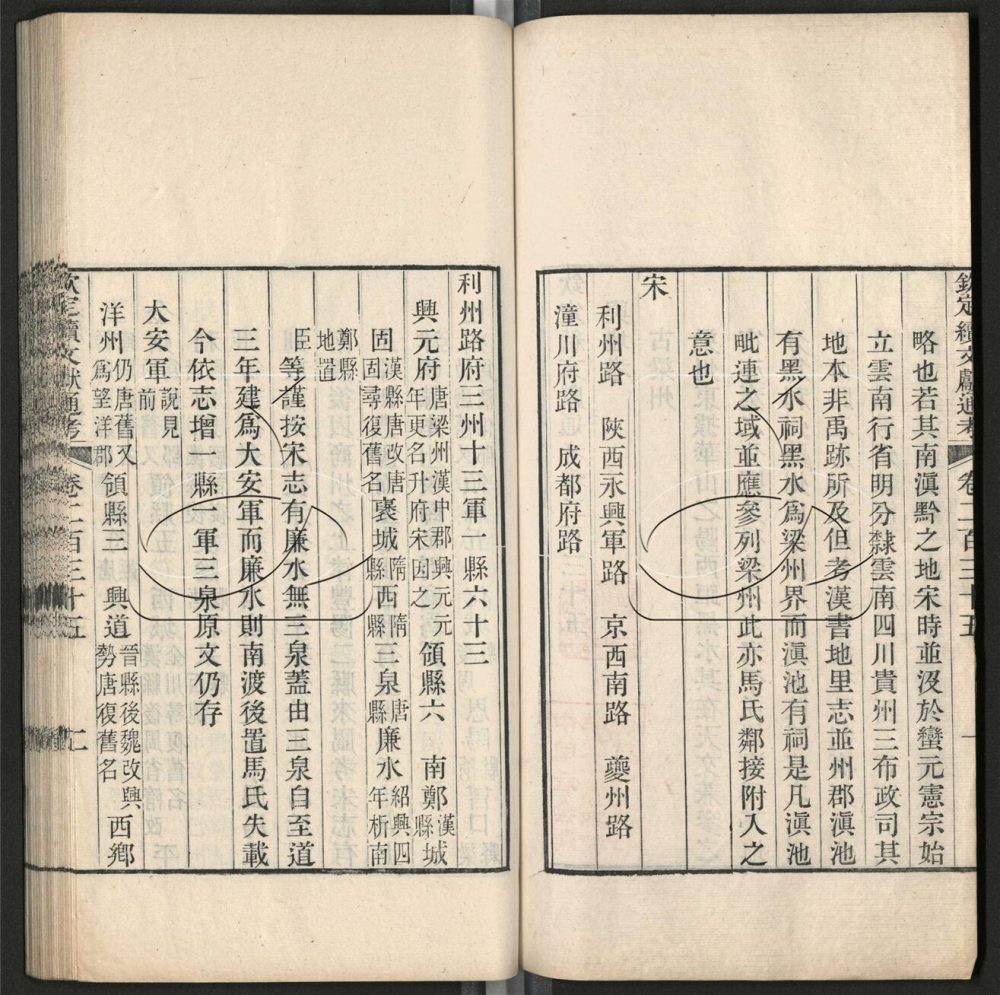 欽定續文獻通考 卷二百三十五
略也若其南滇黔之地宋時並沒於蠻元憲宗始
立雲南行省明分隸雲南四川貴州三布政司其
地本非禹跡所及但考漢書地里志並州郡滇池
有黑水祠黑水爲梁州界而滇池有祠是凡滇池
毗連之域並應參列梁州此亦馬氏鄰接附入之
意也
宋
利州路 陝西永興軍路 京西南路 夔州路
潼川府路 成都府路
利州路府三州十三軍一縣六十三
興元府唐梁州漢中郡興元元年更名升府宋因之領縣六 南鄭漢縣城
固漢縣唐改唐固尋復舊名褒城隋縣西隋縣三泉唐縣廉水紹興四年析南
鄭縣地置
臣等謹按宋志有廉水無三泉蓋由三泉自至道
三年建爲大安軍而廉水則南渡後置馬氏失載
今依志增一縣一軍三泉原文仍存
大安軍說見前
洋州仍唐舊又爲望洋郡領縣三 興道晉縣後魏改興勢唐復舊名西鄉
欽定續文獻通考 卷二百三十五